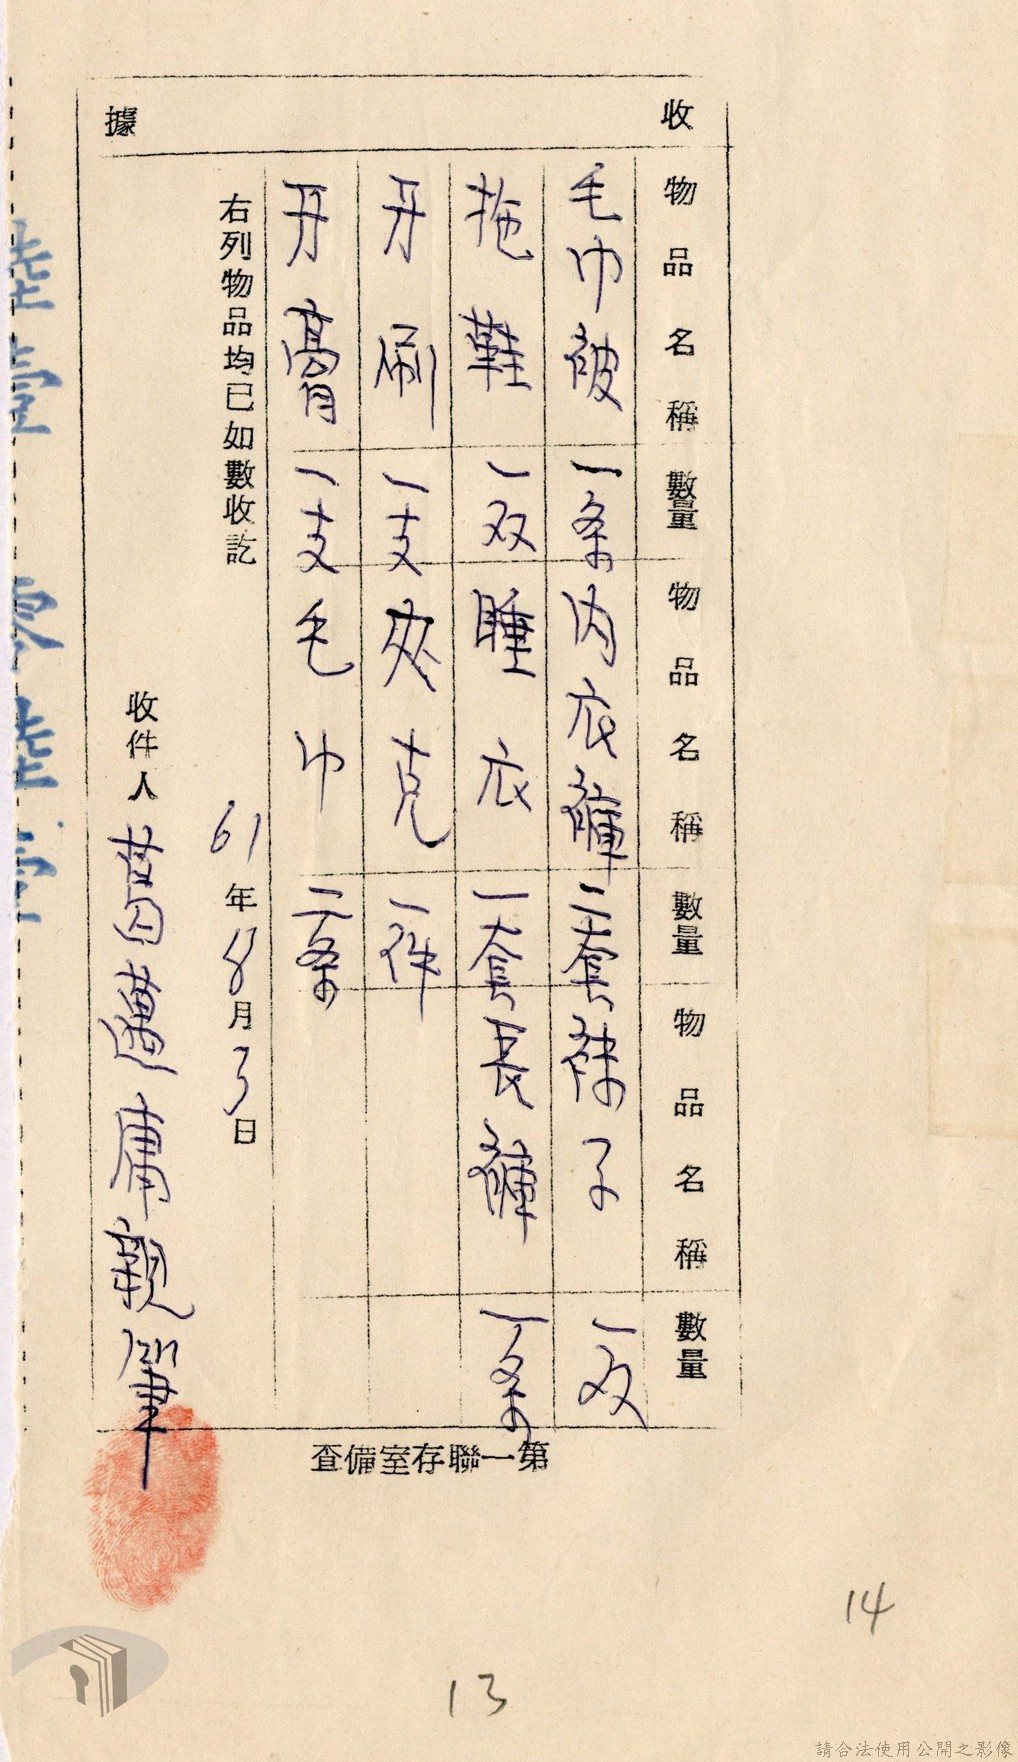 收據
物品名稱 數量 物品名稱 數量 物品名稱 數量
毛巾被 一条 内衣褲 二套 襪子 一双
拖鞋 一双 睡衣 一套 長褲 一条
牙刷 一支 夾克 一件
牙膏 一支 毛巾 二条
右列物品均已如數收訖
61年8月3日
收件人 葛 庸親筆
第一聯存室備查
14
13
請合法使用公開之影像